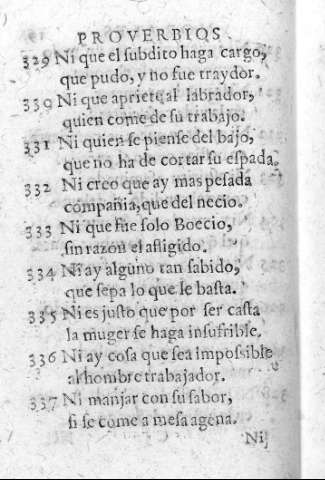 PROVERBIOS.
329 Ni que el subdito haga cargo,
que pudo, y no fue traydor.
330 Ni que apriete al labrador,
quien come de su trabajo.
331 Ni quien se piense del bajo,
que no ha de cortar su espada.
332 Ni creo que ay mas pesada
compañia, que del necio.
333 Ni que fue solo Boecio,
sin razon el afligido.
334 Ni ay alguno tan sabido,
que sepa lo que le basta.
335 Ni es justo que por ser casta
la muger se haga insufrible.
336 Ni ay cosa que sea impossible
al hombre trabajador.
337 Ni manjar con su sabor,
si se come a mesa agena.
Ni